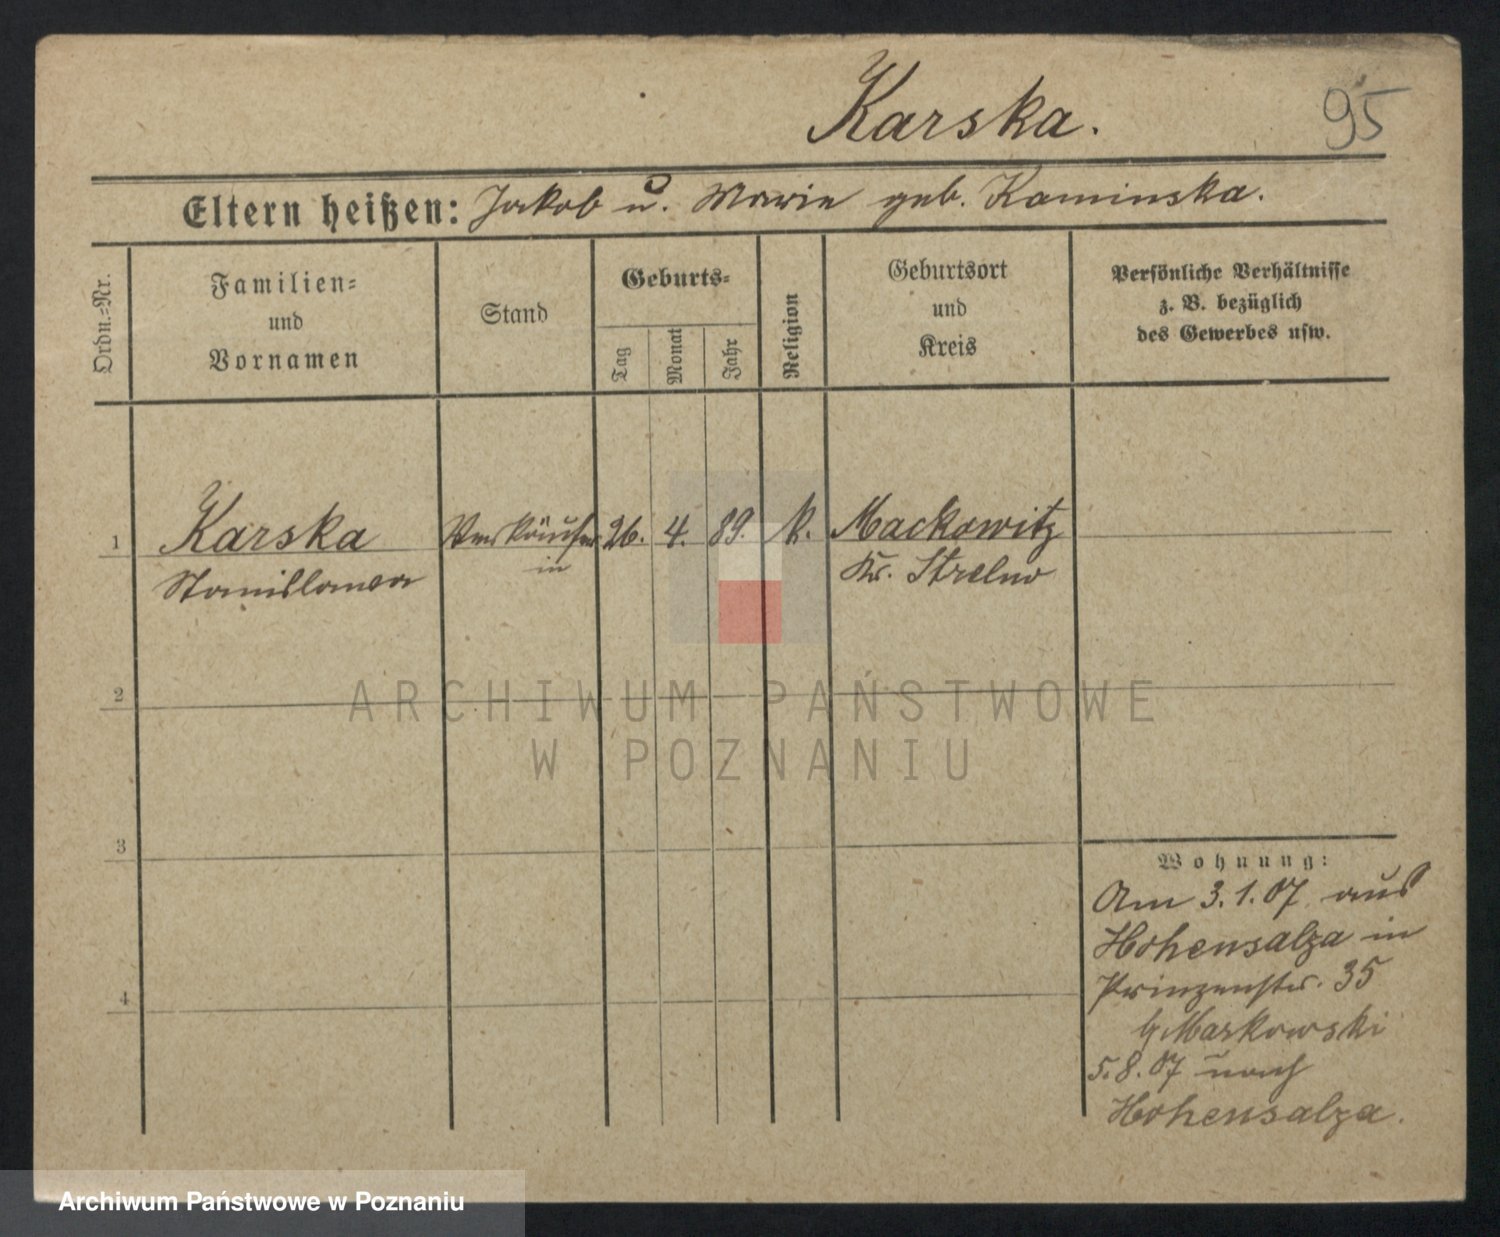 Karska. 95
Eltern heißen: Jakob u. Marie geb. Kaminska.
Ordn.-Nr.
Familien-
und
Vornamen
Stand
Geburts-
Tag
Monat
Jahr
Religion
Geburtsort
und
Kreis
Persönliche Verhältnisse
z. B. bezüglich
des Gewerbes usw.
1 Karska Verkäufer 26. 4. 89. k. Mackowitz
Stanislawa in Kr. Strelno
2
3
4
Wohnung:
Am 3.1.07 aus
Hohensalza in
Prinzenstr. 35
b/ Markowski
5.8.07 nach
Hohensalza.
ARCHIWUM PAŃSTWOWE
W POZNANIU
Archiwum Państwowe w Poznaniu